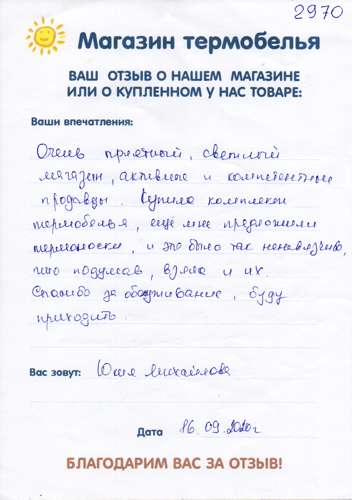 2970
Магазин термобелья
ВАШ ОТЗЫВ О НАШЕМ МАГАЗИНЕ
ИЛИ О КУПЛЕННОМ У НАС ТОВАРЕ:
Ваши впечатления:
Очень приятный, светлый
магазин, активные и компетентные
продавцы. Купила комплект
термобелья, ещё мне предложили
термоноски, и это было так ненавязчиво,
что подумав, взяла и их.
Спасибо за обслуживание, буду
приходить.
Вас зовут: Юлия Михайловна
Дата 16.09.2020г
БЛАГОДАРИМ ВАС ЗА ОТЗЫВ!